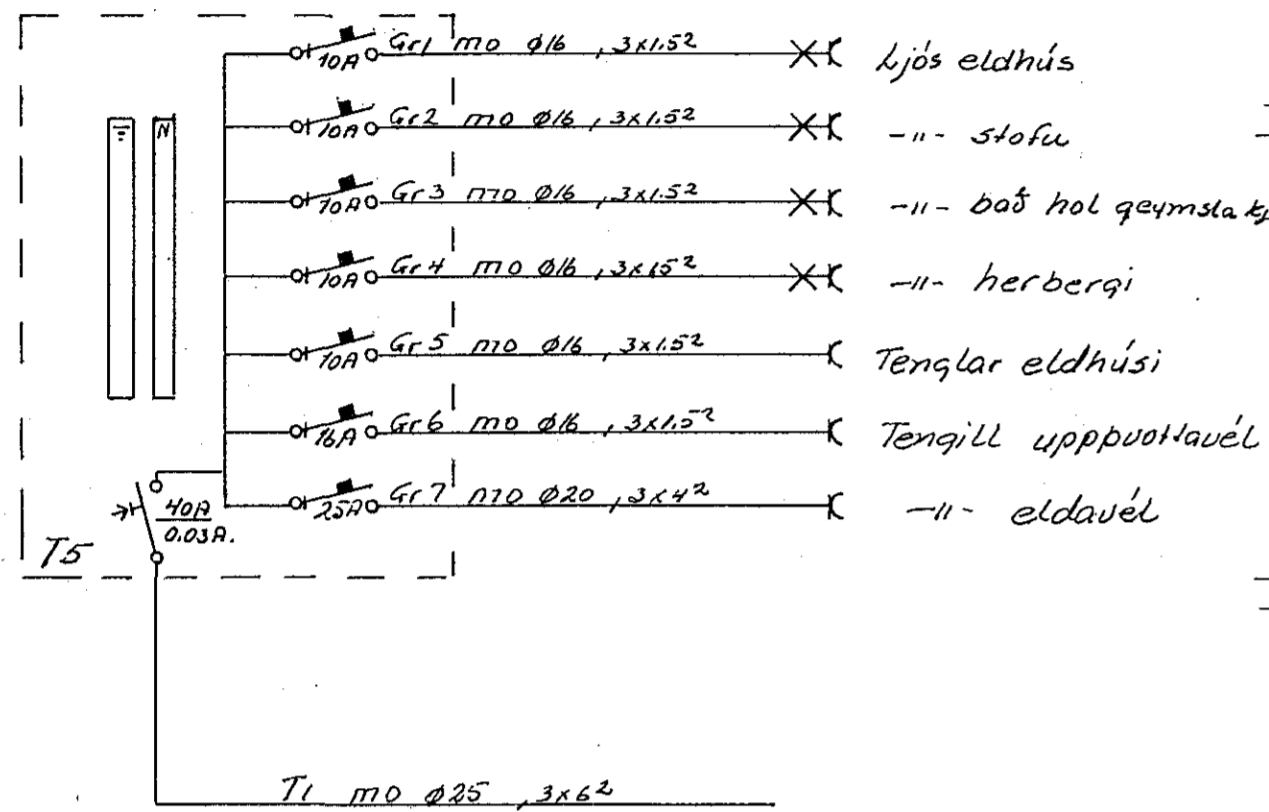 10A Gr1 mo ø16, 3x1.5² Ljós eldhús
10A Gr2 mo ø16, 3x1.5² -"- stofu
10A Gr3 mo ø16, 3x1.5² -"- bað hol geymsla
10A Gr4 mo ø16, 3x15² -"- herbergi
10A Gr5 mo ø16, 3x1.5² Tenglar eldhúsi
16A Gr6 mo ø16, 3x1.5² Tengill uppþvottavél
25A Gr7 mo ø20, 3x4² -"- eldavél
N
40A
0.03A.
T5
T1 mo ø25, 3x6²